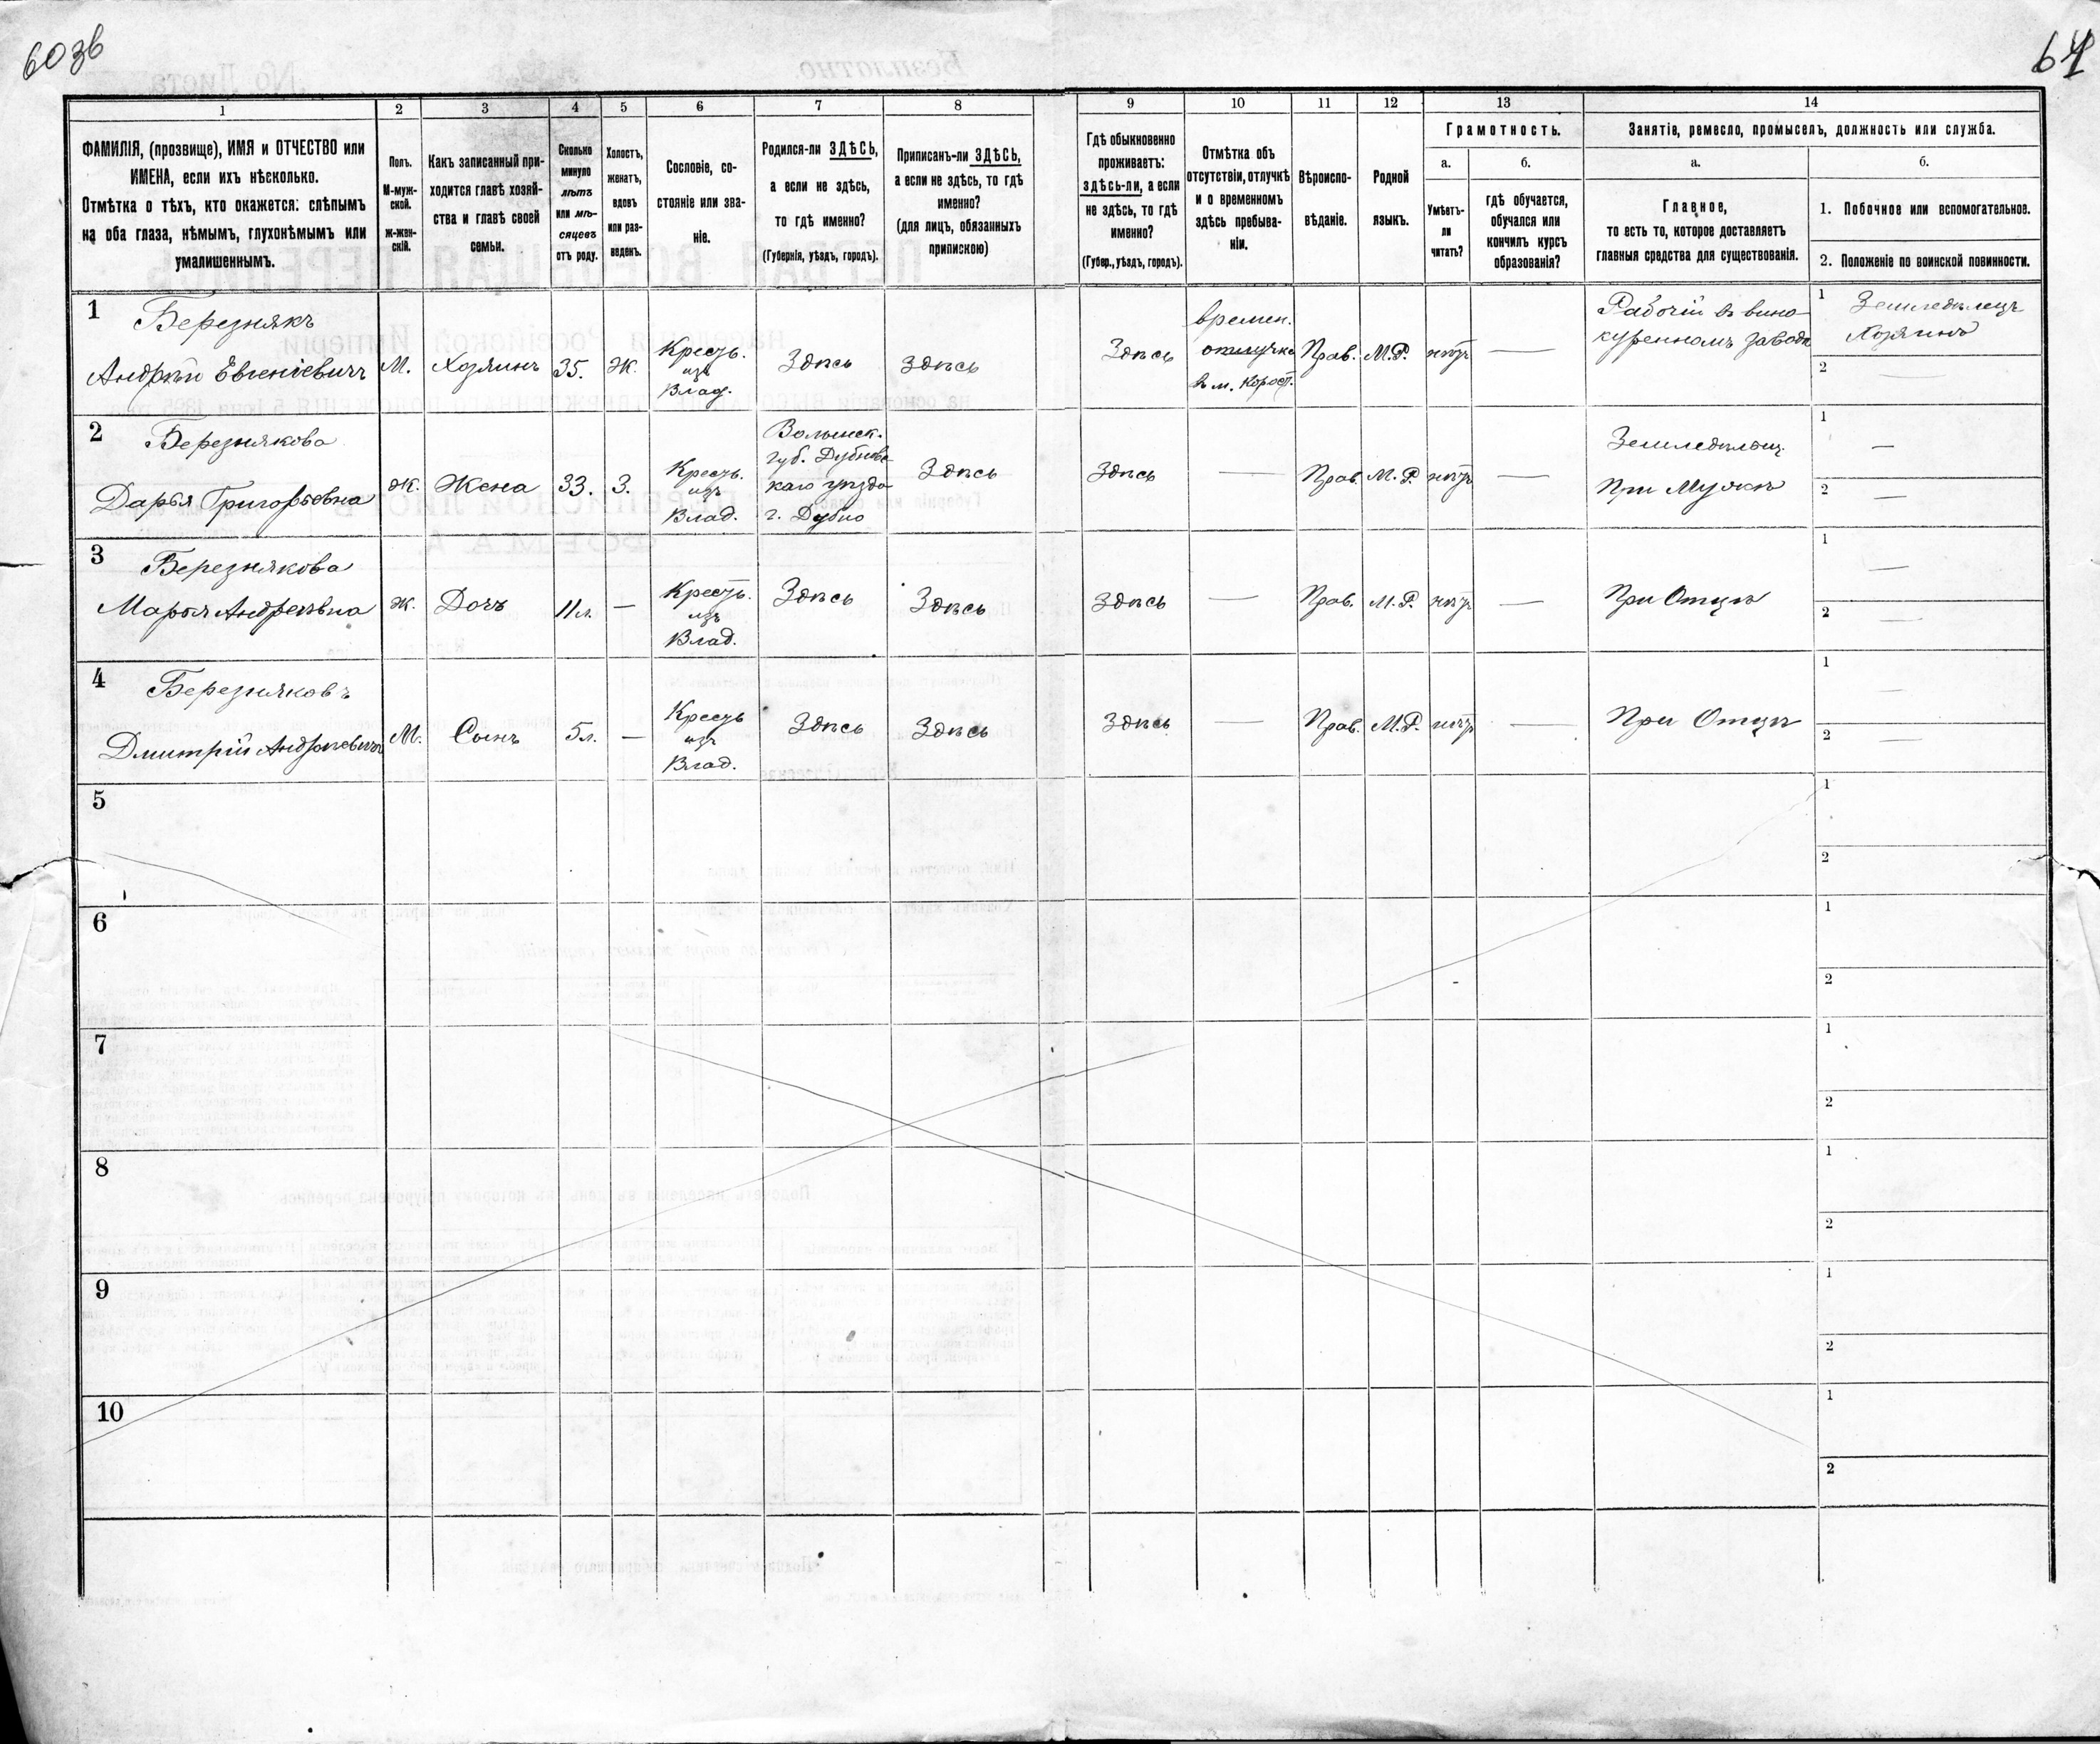 60зв
61
1 2 3 4 5 6 7 8 9 10 11 12 13 14
ФАМИЛІЯ, (прозвище), ИМЯ и ОТЧЕСТВО или
ИМЕНА, если ихъ нѣсколько.
Отмѣтка о тѣхъ, кто окажется: слѣпымъ
на оба глаза, нѣмымъ, глухонѣмымъ или
умалишеннымъ.
Полъ.
М-муж-
ской.
Ж-жен-
скій.
Какъ записанный при-
ходится главѣ хозяй-
ства и главѣ своей
семьи.
Сколько
минуло
лѣтъ
или мѣ-
сяцевъ
отъ роду.
Холостъ,
женатъ,
вдовъ
или раз-
веденъ.
Сословіе, со-
стояніе или зва-
ніе.
Родился-ли ЗДѢСЬ,
а если не здѣсь,
то гдѣ именно?
(Губернія, уѣздъ, городъ).
Приписанъ-ли ЗДѢСЬ,
а если не здѣсь, то гдѣ
именно?
(для лицъ, обязанныхъ
припискою)
Гдѣ обыкновенно
проживаетъ:
здѣсь-ли, а если
не здѣсь, то гдѣ
именно?
(Губер., уѣздъ, городъ).
Отмѣтка объ
отсутствіи, отлучкѣ
и о временномъ
здѣсь пребыва-
ніи.
Вѣроиспо-
вѣданіе.
Родной
языкъ.
Грамотность.
а.
Умѣетъ-
ли
читать?
б.
гдѣ обучается,
обучался или
кончилъ курсъ
образованія?
Занятіе, ремесло, промыселъ, должность или служба.
а.
Главное,
то есть то, которое доставляетъ
главныя средства для существованія.
б.
1. Побочное или вспомогательное.
2. Положеніе по воинской повинности.
1
Березнякъ
Андрѣй Евгеніевичъ
М.
Хозяинъ
35.
Ж.
Крест.
изъ
Влад.
Здѣсь
Здѣсь
Здѣсь
времен.
отлучка
въ м. Корост.
Прав.
М.Р.
нѣтъ
—
Рабочій въ вино-
куренномъ заводѣ
1 Земледѣлецъ
Хозяинъ
2 —
2
Березнякова
Дарья Григорьевна
Ж.
Жена
33.
З.
Крест.
изъ
Влад.
Волынск.
губ. Дубенс-
каго уѣзда
г. Дубно
Здѣсь
Здѣсь
—
Прав.
М.Р.
нѣтъ
—
Земледѣлец.
При Мужѣ
1 —
2 —
3
Березнякова
Марья Андреевна
Ж.
Дочь
11 л.
—
Крест.
изъ
Влад.
Здѣсь
Здѣсь
Здѣсь
—
Прав.
М.Р.
нѣтъ
—
При Отцѣ
1 —
2 —
4
Березняковъ
Дмитрій Андреевичъ
М.
Сынъ
5 л.
—
Крест.
изъ
Влад.
Здѣсь
Здѣсь
Здѣсь
—
Прав.
М.Р.
нѣтъ
—
При Отцѣ
1 —
2 —
5
1
2
6
1
2
7
1
2
8
1
2
9
1
2
10
1
2